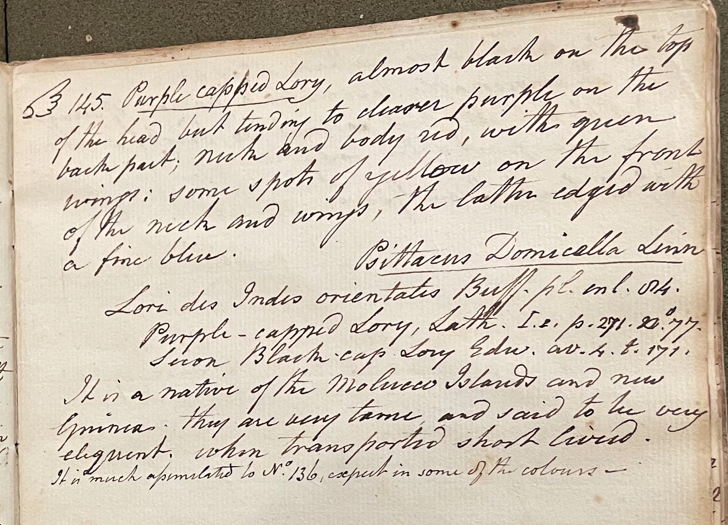 B 145. Purple capped Lory, almost black on the top
of the head but tending to clearer purple on the
back part; neck and body red, with green
wings: some spots of yellow on the front
of the neck and wings, the latter edged with
a fine blue.
Psittacus Domicella Linn
Lori des Indes orientales Buff. pl. enl. 84.
Purple-capped Lory, Lath. I. e. p. 271. No. 77.
Black-cap. Lory Edw. av. 4. t. 171.
It is a native of the Molucco Islands and new
Guinea. they are very tame and said to be very
eloquent. when transported short lived.
It is much assimilated to No. 136, except in some of the colours—